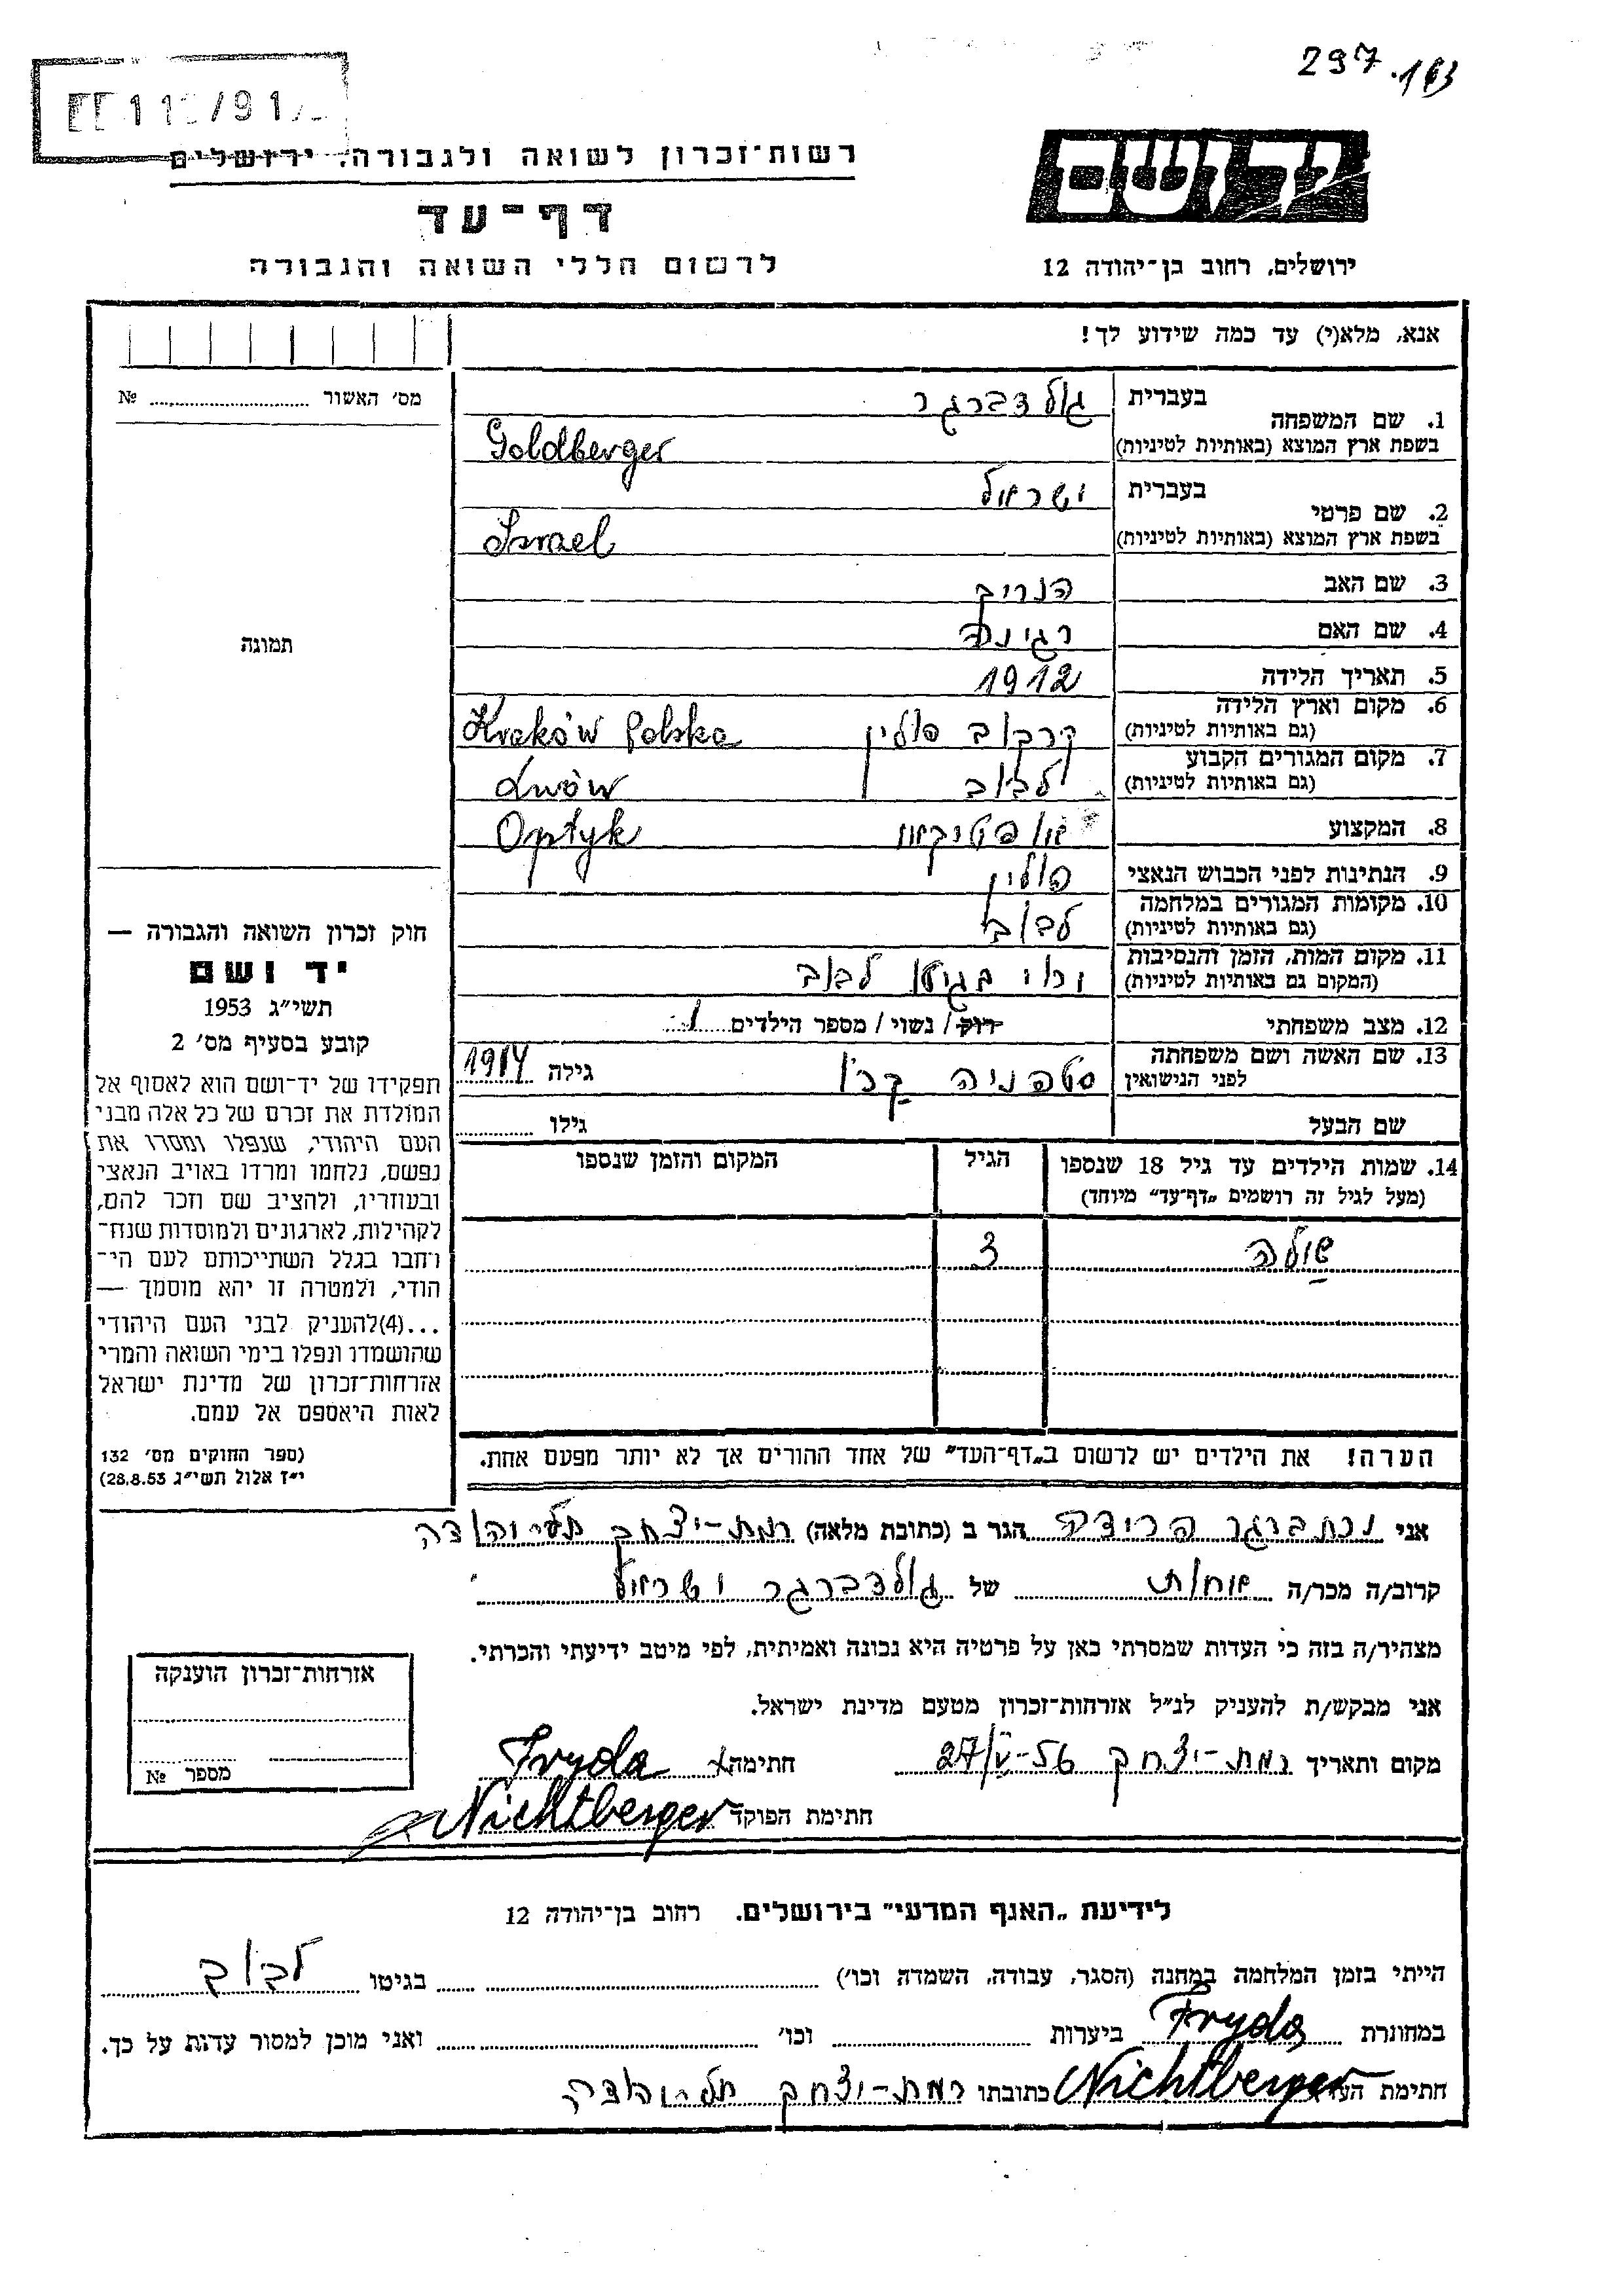 297.163
רשות־זכרון לשואה ולגבורה, ירושלים
יד ושם
דף־עד
לרשום חללי השואה והגבורה
ירושלים, רחוב בן־יהודה 12
אנא, מלא(י) עד כמה שידוע לך!
מס׳ האשור № 
תמונה
1. שם המשפחה
בעברית גולדברגר
בשפת ארץ המוצא (באותיות לטיניות) Goldberger
2. שם פרטי
בעברית ישראל
בשפת ארץ המוצא (באותיות לטיניות) Israel
3. שם האב הנריק
4. שם האם רגינה
5. תאריך הלידה 1912
6. מקום וארץ הלידה (גם באותיות לטיניות) קרקוב פולין Kraków Polska
7. מקום המגורים הקבוע (גם באותיות לטיניות) לבוב Lwów
8. המקצוע אופטיקאי Optyk
9. הנתינות לפני הכבוש הנאצי פולין
10. מקומות המגורים במלחמה (גם באותיות לטיניות) לבוב
11. מקום המות, הזמן והנסיבות (המקום גם באותיות לטיניות) בגיטו לבוב
12. מצב משפחתי רוק/ נשוי/ מספר הילדים 1
13. שם האשה ושם משפחתה לפני הנישואין סטפניה גילה 1914
שם הבעל גילו
14. שמות הילדים עד גיל 18 שנספו (מעל לגיל זה רושמים „דף־עד״ מיוחד)
הגיל
המקום והזמן שנספו
שולה 3
הערה! את הילדים יש לרשום ב„דף־העד״ של אחד ההורים אך לא יותר מפעם אחת.
חוק זכרון השואה והגבורה —
יד ושם
תשי״ג 1953
קובע בסעיף מס׳ 2
תפקידו של יד־ושם הוא לאסוף אל
המולדת את זכרם של כל אלה מבני
העם היהודי, שנפלו ומסרו את
נפשם, נלחמו ומרדו באויב הנאצי
ובעוזריו, ולהציב שם וזכר להם,
לקהילות, לארגונים ולמוסדות שנח־
רחבו בגלל השתייכותם לעם הי־
הודי, ולמטרה זו יהא מוסמך —
...(4)להעניק לבני העם היהודי
שהושמדו ונפלו בימי השואה והמרי
אזרחות־זכרון של מדינת ישראל
לאות היאספם אל עמם.
(ספר החוקים מס׳ 132
י״ז אלול תשי״ג 28.8.53)
אני נכטברגר פרידה הגר ב (כתובת מלאה) רמת-יצחק תל-יהודה
קרוב/ה מכר/ה אחות של גולדברגר ישראל
מצהיר/ה בזה כי העדות שמסרתי כאן על פרטיה היא נכונה ואמיתית, לפי מיטב ידיעתי והכרתי.
אני מבקש/ת להעניק לנ״ל אזרחות־זכרון מטעם מדינת ישראל.
מקום ותאריך רמת-יצחק 27/V-56 חתימה Fryda
חתימת הפוקד Nichtberger
אזרחות־זכרון הוענקה
מספר №
לידיעת „האגף המדעי״ בירושלים. רחוב בן־יהודה 12
הייתי בזמן המלחמה במחנה (הסגר, עבודה, השמדה וכו׳) בגיטו לבוב
במחותרת Fryda ביערות וכו׳ ואני מוכן למסור עדות על כך.
חתימת העד Nichtberger כתובתו רמת-יצחק תל-יהודה